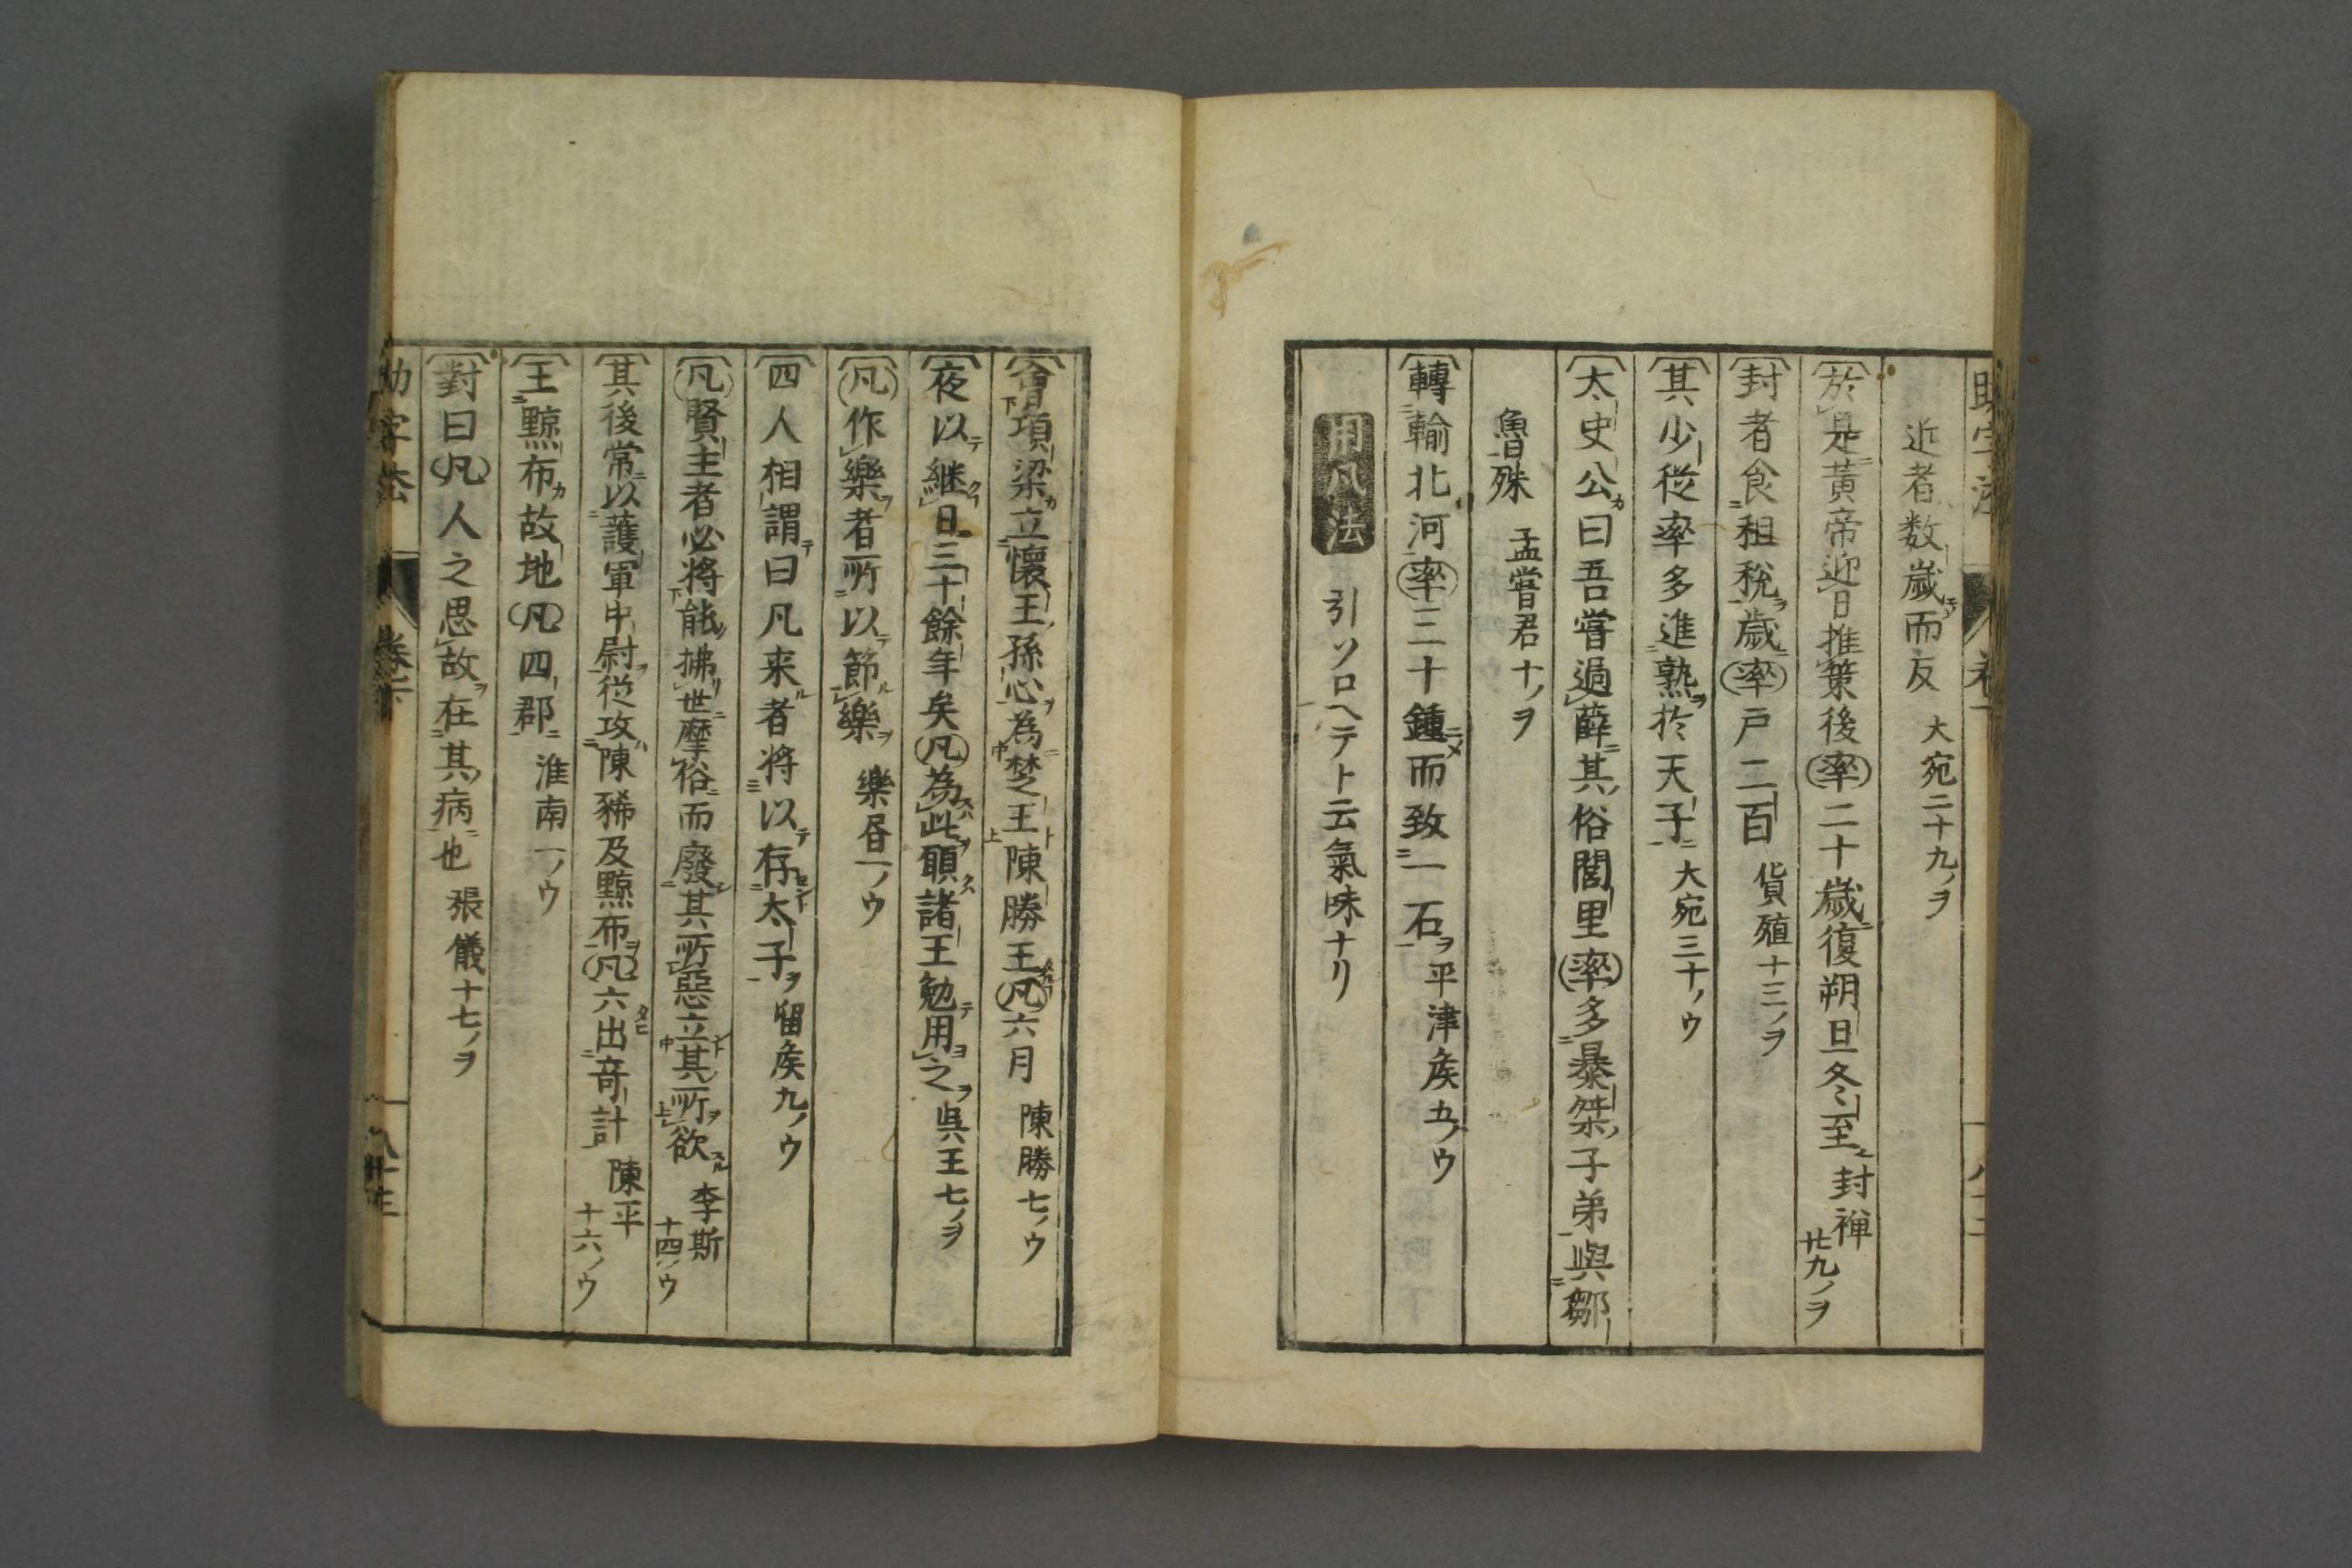 近者数歳而反 大宛二十九ノヲ
於是黄帝迎日推策後率二十歳復朔旦冬至 封禅廿九ノヲ
封者食租税歳率戸二百 貨殖十三ノヲ
其少従率多進熟於天子 大宛三十ノウ
太史公曰吾嘗過薛其俗閭里率多暴桀子弟與鄒
魯殊 孟嘗君十ノヲ
轉輸北河率三十鍾而致一石 平津矦五ノウ
用凡法 引ソロヘテト云氣味ナリ
會項梁立懷王孫心為楚王陳勝王凡六月 陳勝七ノウ
夜以継日三十餘年矣凡為此願諸王勉用之 呉王七ノヲ
凡作樂者所以節樂 樂昏一ノウ
四人相謂曰凡来者将以存太子 留矦九ノウ
凡賢主者必将能拂世摩俗而廢其所惡立其所欲 李斯十四ノウ
其後常以護軍中尉從攻陳豨及黥布凡六出竒計 陳平十六ノウ
王黥布故地凡四郡 淮南一ノウ
對曰凡人之思故在其病也 張儀十七ノヲ